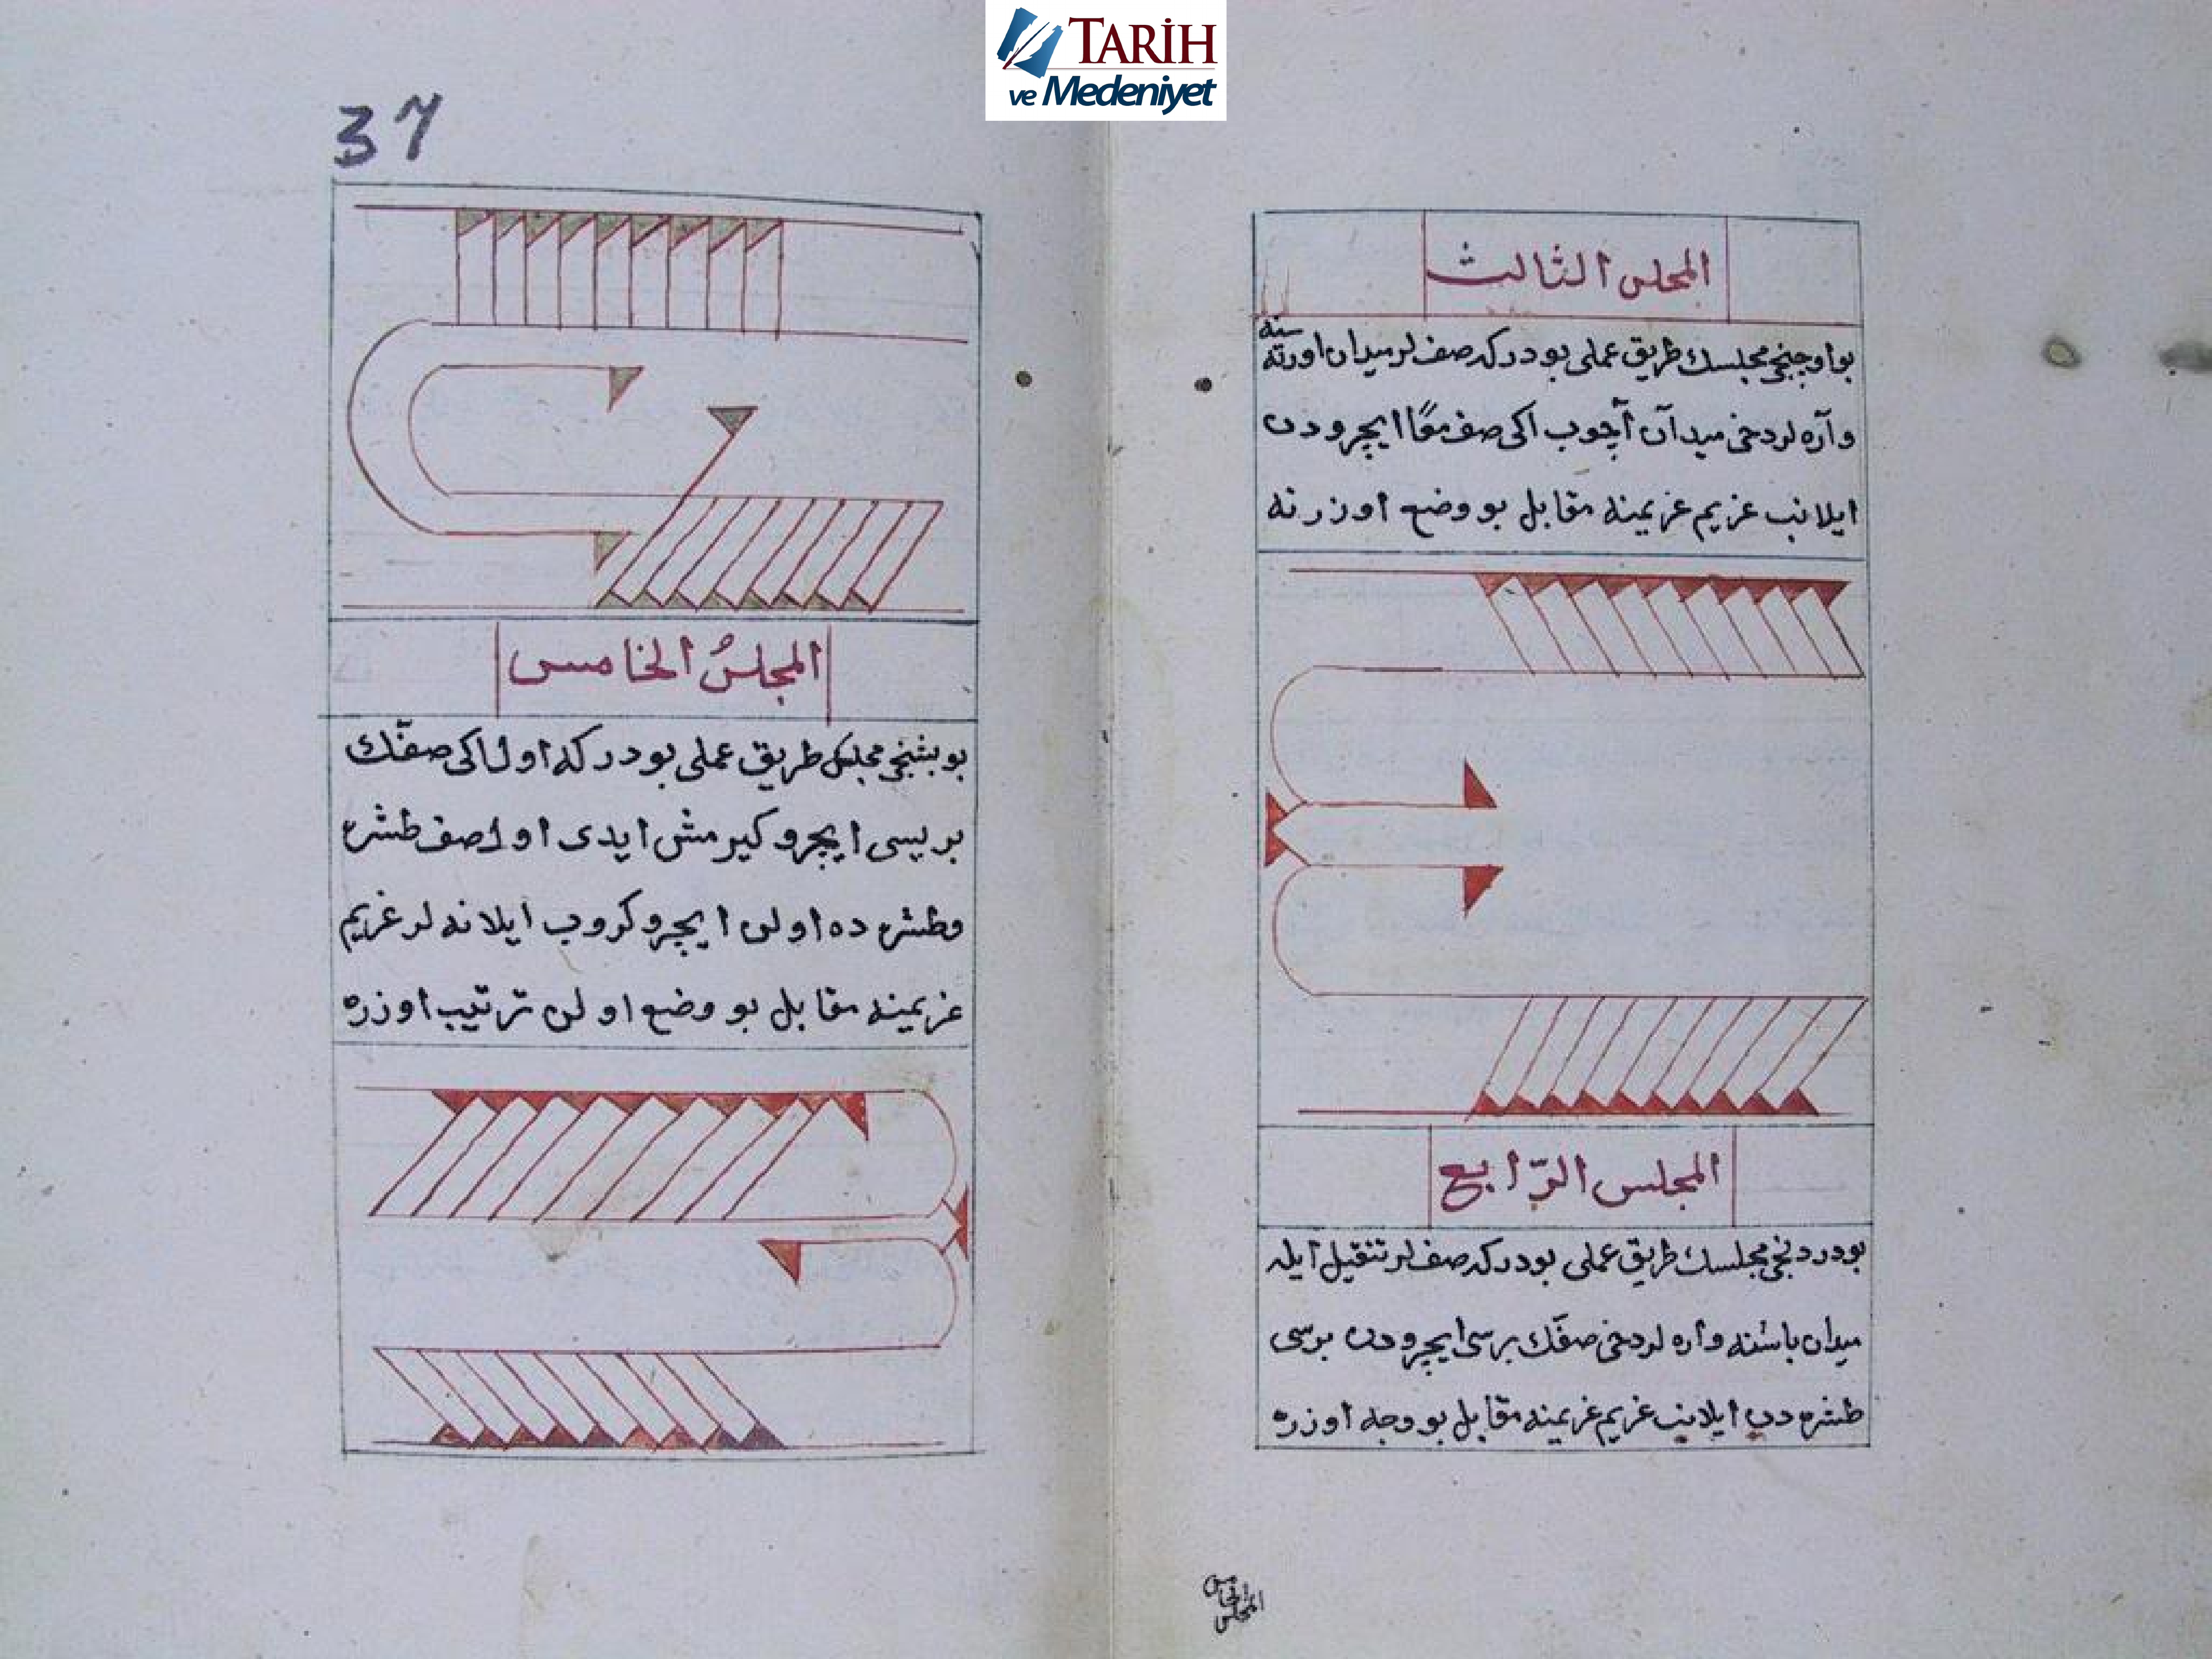 TARİH
ve Medeniyet
المجلس الثالث
بو اوچنجی مجلسك طریق عملی بودر كه صفلر میدان اورته سنه
واره لر دخی میدان آچوب اكی صف معًا ایچرودن
ایلانب غریم غریمنه مقابل بو وضع اوزرنه
المجلس الرّابع
بو دردنجی مجلسك طریق عملی بودر كه صفلر تنقیل ایله
میدان باشنه واره لر دخی صفّك برسی ایچرودن برسی
طشره دن ایلانب غریم غریمنه مقابل بو وجه اوزره
المجلس الخامس
37
المجلسُ الخامس
بو بشنجی مجلسك طریق عملی بودر كه اول اكی صفّك
بریسی ایچرو كیرمش ایدی اول صف طشره
وطشره ده اولن ایچرو كروب ایلانه لر غریم
غریمنه مقابل بو وضع اولن ترتیب اوزره